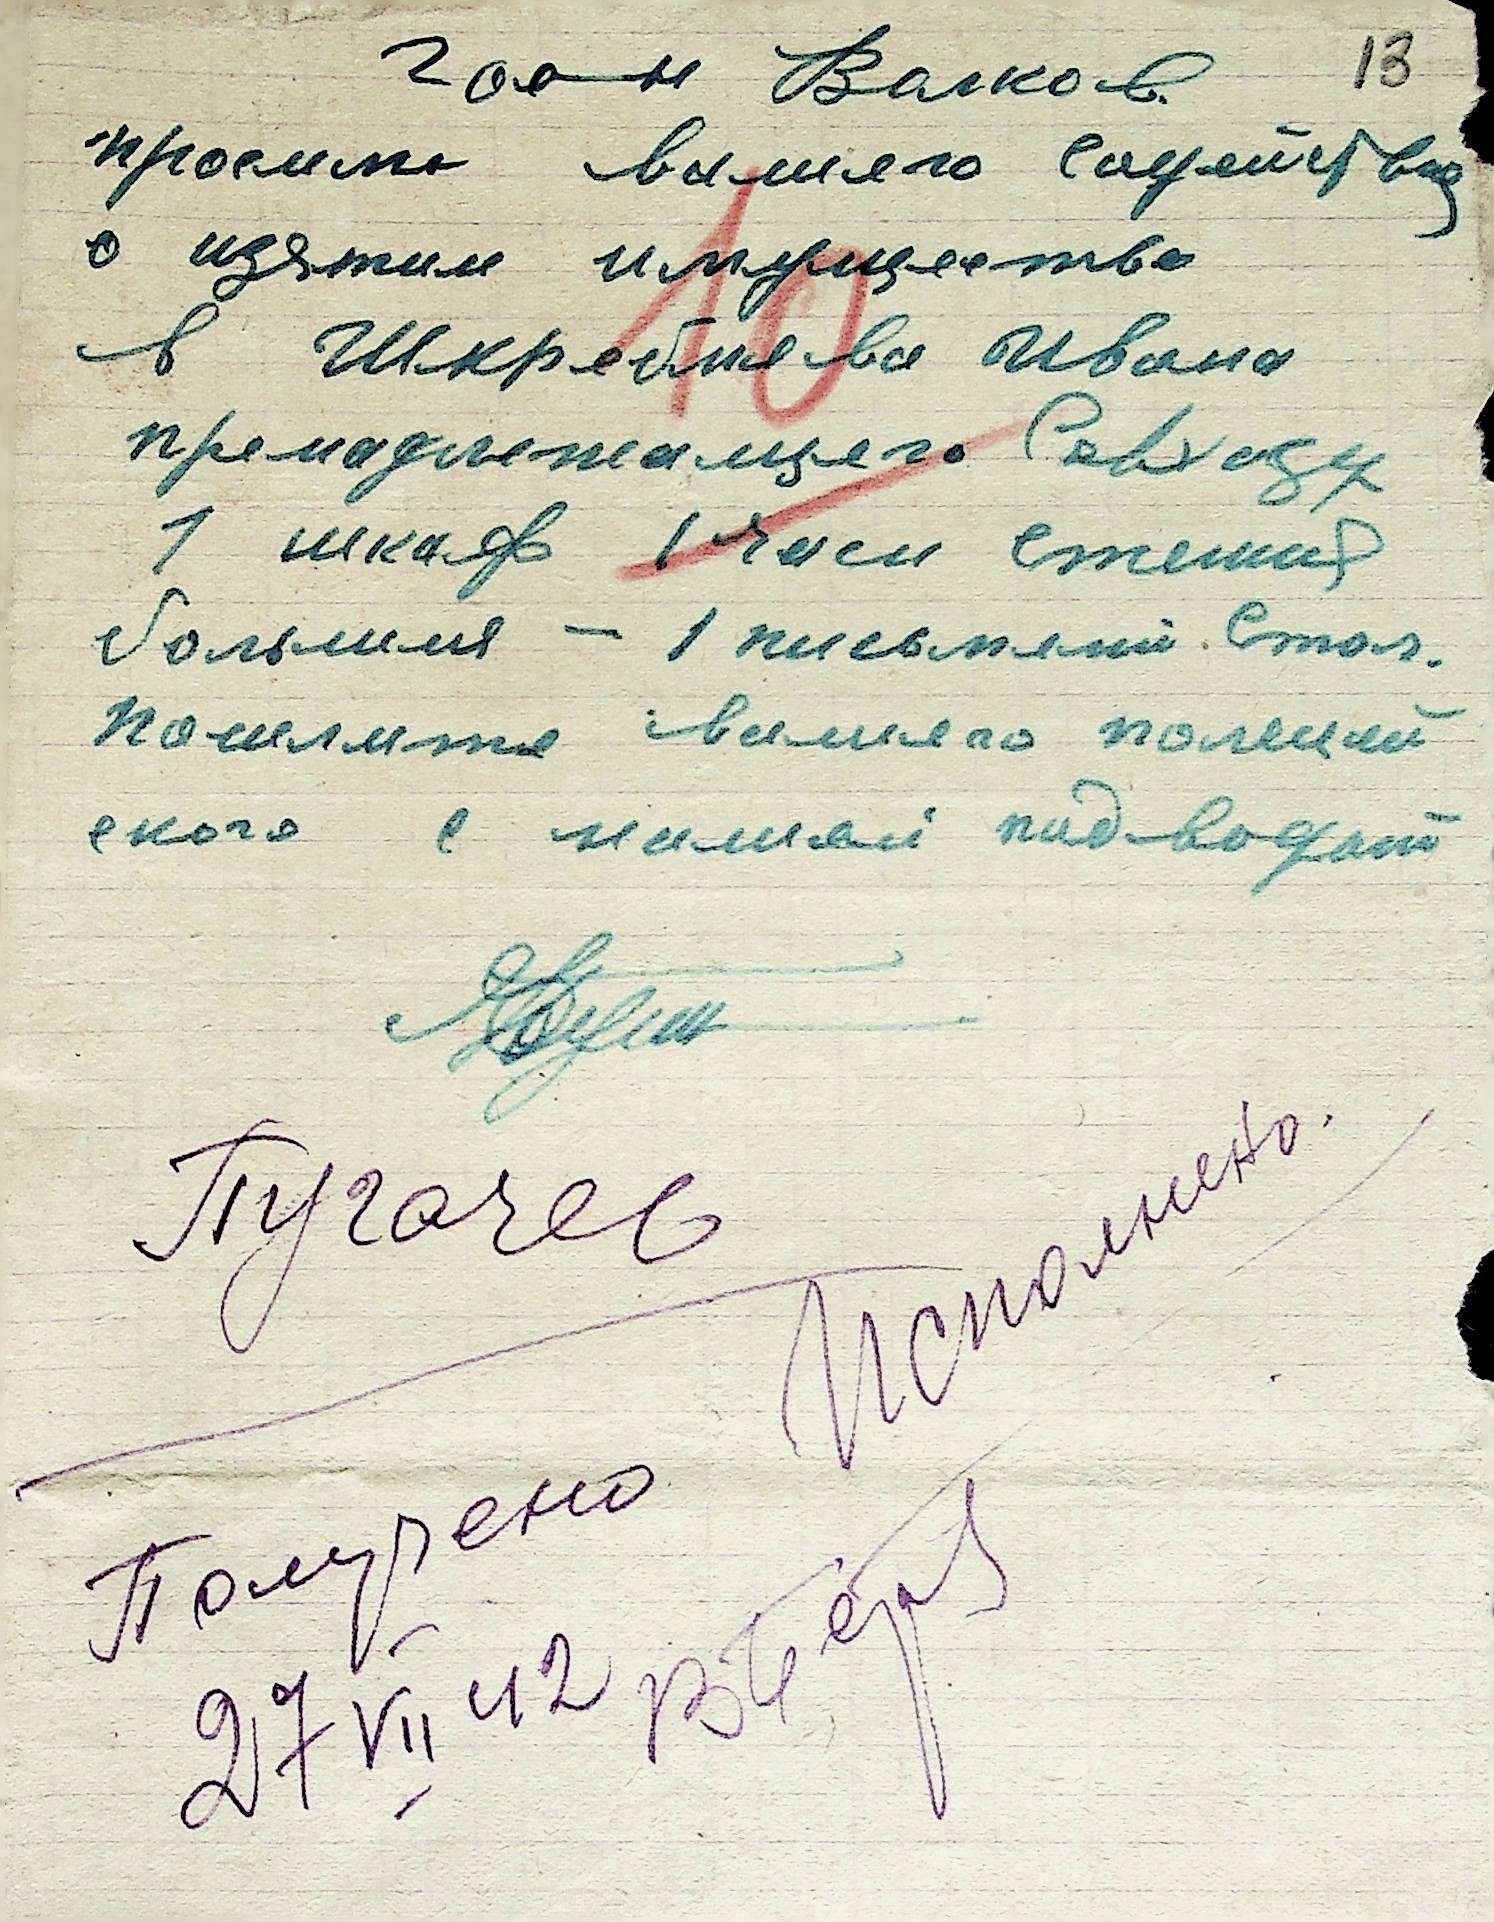 13
Госн Валков.
просим вашего содействия
о изятии имущества
10
в Шкрейнева Ивана
пренадлежащего Совхозу
1 шкаф 1 часи стени
большия – 1 писменй стол.
пошлите вашего полицей
ского с нашей подводой
Пугачев
Исполнено.
Получено
27 VII 42